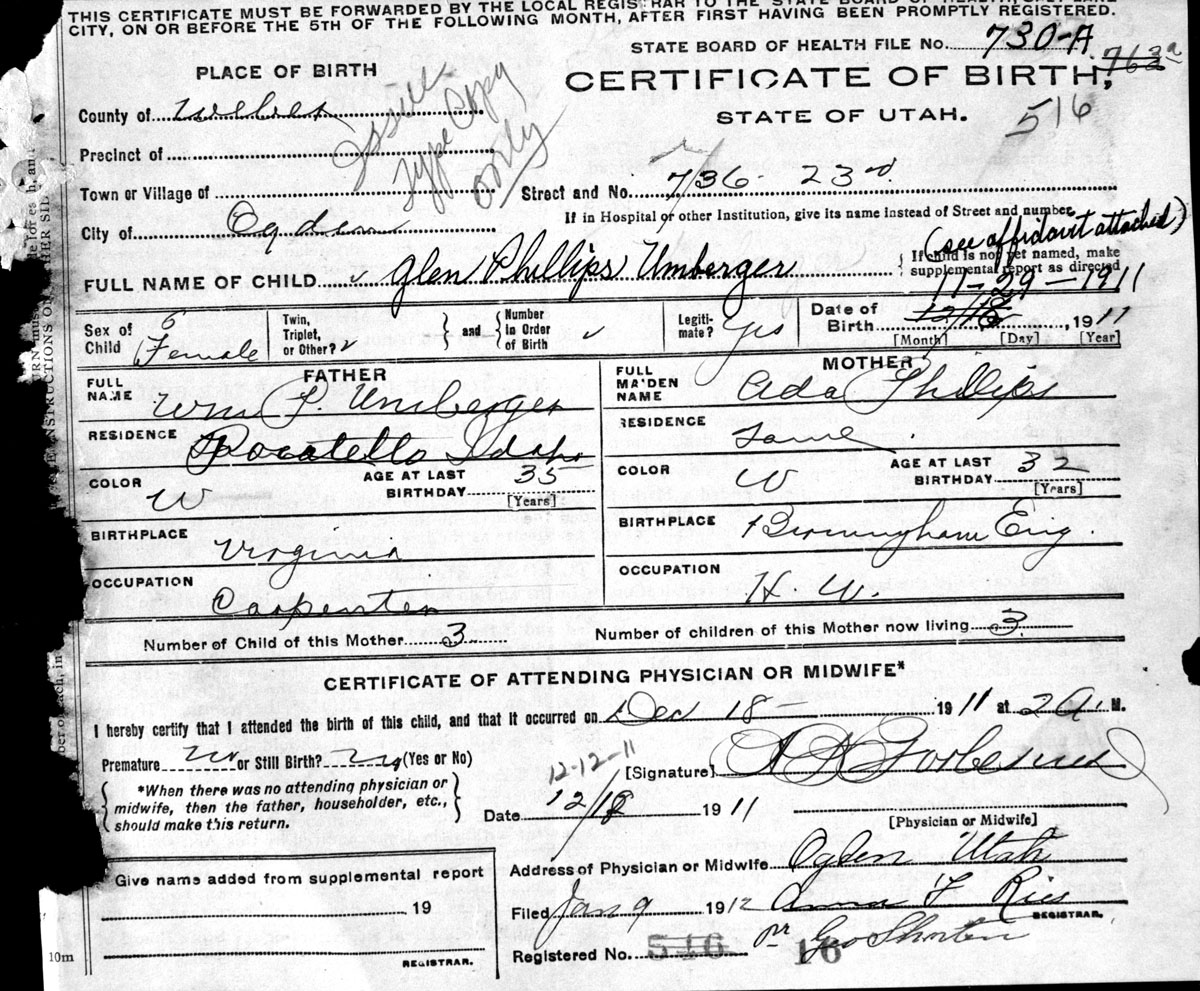 THIS CERTIFICATE MUST BE FORWARDED BY THE LOCAL REGISTRAR TO THE STATE BOARD OF HEALTH, SALT LAKE
CITY, ON OR BEFORE THE 5TH OF THE FOLLOWING MONTH, AFTER FIRST HAVING BEEN PROMPTLY REGISTERED.
STATE BOARD OF HEALTH FILE No. 730-A
763a
PLACE OF BIRTH
CERTIFICATE OF BIRTH,
County of Weber
STATE OF UTAH.
516
Issue
Type Copy
only
Precinct of
Town or Village of
Street and No. 736- 23rd
If in Hospital or other Institution, give its name Instead of Street and number.
City of Ogden
(see affidavit attached)
FULL NAME OF CHILD Glen Phillips Umberger
If child is not yet named, make
supplemental report as directed
11-29-1911
Sex of Child Female
Twin, Triplet, or Other?
and
Number in Order of Birth
Legitimate? Yes
Date of Birth 12/18 1911
[Month] [Day] [Year]
FATHER
MOTHER
FULL NAME Wm P. Umberger
FULL MAIDEN NAME Ada Phillips
RESIDENCE Pocatello Idaho
RESIDENCE Same
COLOR W
AGE AT LAST BIRTHDAY 35 [Years]
COLOR W
AGE AT LAST BIRTHDAY 32 [Years]
BIRTHPLACE Virginia
BIRTHPLACE Birmingham Eng.
OCCUPATION Carpenter
OCCUPATION H. W.
Number of Child of this Mother 3
Number of children of this Mother now living 3
CERTIFICATE OF ATTENDING PHYSICIAN OR MIDWIFE*
I hereby certify that I attended the birth of this child, and that it occurred on Dec 18 1911 at 2 A. M.
Premature no or Still Birth? no (Yes or No)
12-12-11
[Signature]
*When there was no attending physician or
midwife, then the father, householder, etc.,
should make this return.
Date 12/18 1911
[Physician or Midwife]
Give name added from supplemental report
Address of Physician or Midwife Ogden Utah
19
Filed Jan 9 1912 Anna F Ries
REGISTRAR.
pr Geo Shorten
Registered No. 546 16
10m
REGISTRAR.